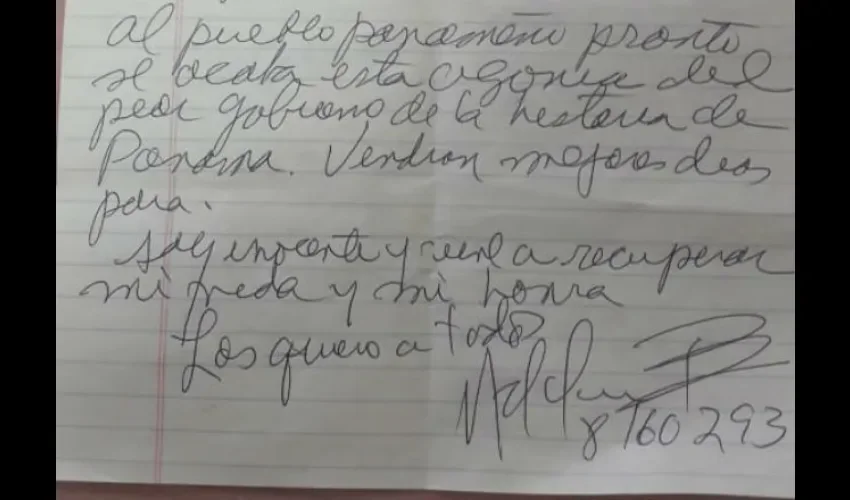 al pueblo panameño pronto
se acaba esta agonia del
peor gobierno de la historia de
Panama. Vendran mejores dias
para.
Soy inocente y vine a recuperar
mi vida y mi honra
Los quiero a todos
8 160 293